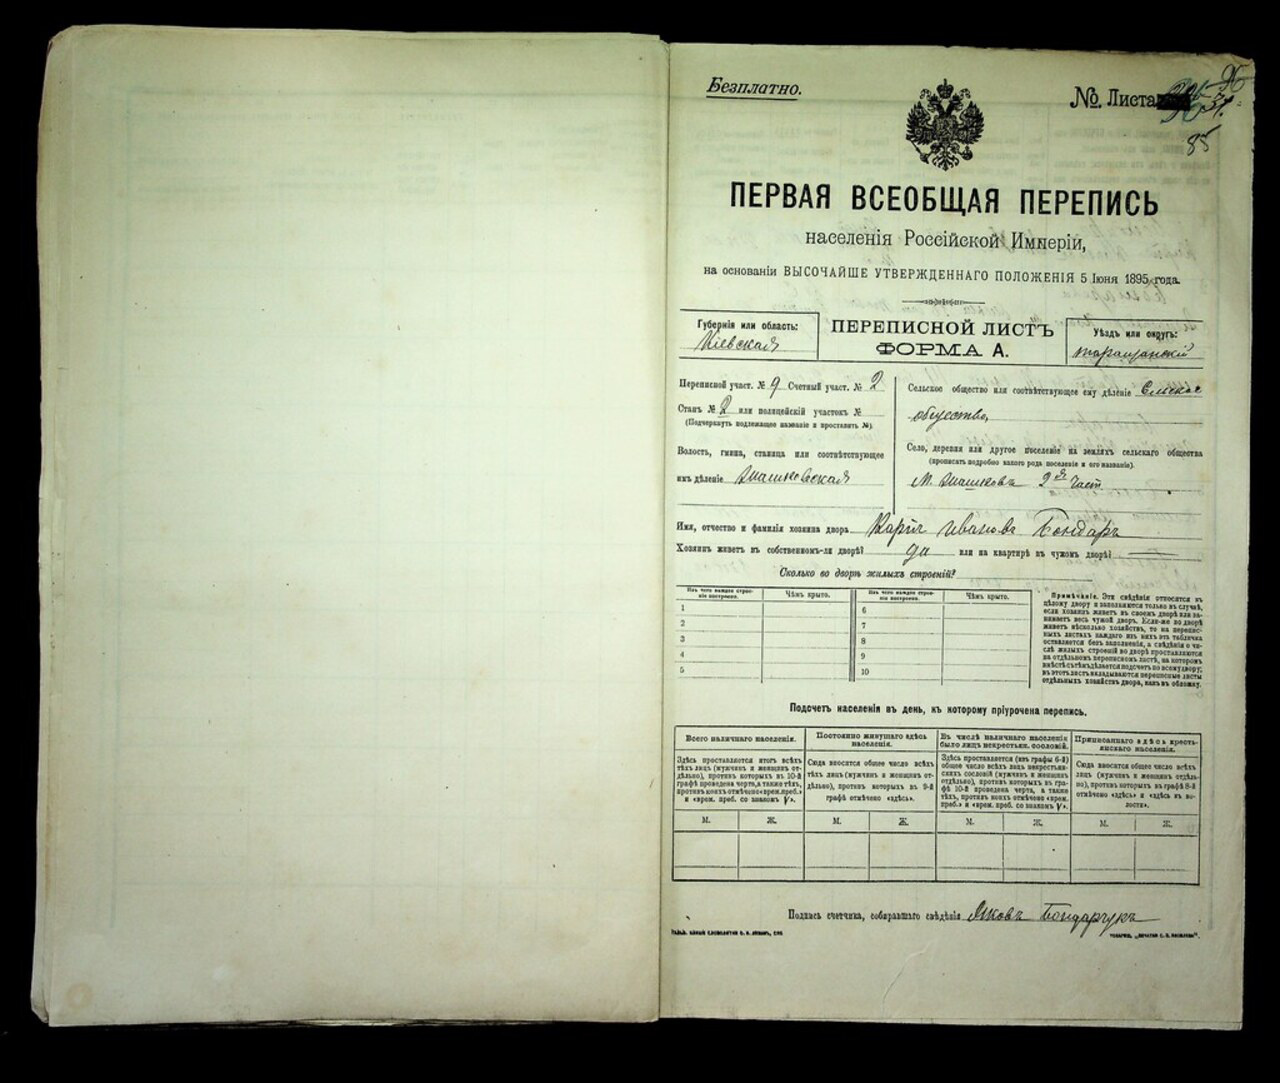 Безплатно.
№ Листа
85
ПЕРВАЯ ВСЕОБЩАЯ ПЕРЕПИСЬ
населенія Россійской Имперіи,
на основаніи ВЫСОЧАЙШЕ УТВЕРЖДЕННАГО ПОЛОЖЕНІЯ 5 Іюня 1895 года.
Губернія или область:
Кіевская
ПЕРЕПИСНОЙ ЛИСТЪ
ФОРМА А.
Уѣздъ или округъ:
таращанскій
Переписной участ. № 9 Счетный участ. № 2
Станъ № 2 или полицейскій участокъ №
(Подчеркнуть подлежащее названіе и проставить №).
Волость, гмина, станица или соотвѣтствующее
имъ дѣленіе
Сельское общество или соотвѣтствующее ему дѣленіе
общество,
Село, деревня или другое поселеніе на земляхъ сельскаго общества
(прописать подробно какого рода поселеніе и его названіе).
М. 2й Част
Имя, отчество и фамилія хозяина двора Иванова Бондаръ
Хозяинъ живетъ въ собственномъ-ли дворѣ? да или на квартирѣ въ чужомъ дворѣ?
Сколько во дворѣ жилыхъ строеній?
Изъ чего каждое строеніе построено.
Чѣмъ крыто.
Изъ чего каждое строеніе построено.
Чѣмъ крыто.
1
2
3
4
5
6
7
8
9
10
Примѣчаніе. Эти свѣдѣнія относятся къ
цѣлому двору и заполняются только въ случаѣ,
если хозяинъ живетъ въ своемъ дворѣ или занимаетъ
весь чужой дворъ. Если-же во дворѣ
живетъ нѣсколько хозяйствъ, то на переписныхъ
листахъ каждаго изъ нихъ эта табличка
оставляется безъ заполненія, а свѣдѣнія о числѣ
жилыхъ строеній во дворѣ проставляются
на отдѣльномъ переписномъ листѣ, на которомъ
вмѣстѣ съ тѣмъ дѣлается подсчетъ по всему двору;
въ этотъ листъ вкладываются переписные листы
отдѣльныхъ хозяйствъ двора, какъ въ обложку.
Подсчетъ населенія въ день, къ которому пріурочена перепись.
Всего наличнаго населенія.
Здѣсь проставляется итогъ всѣхъ
тѣхъ лицъ (мужчинъ и женщинъ отдѣльно),
противъ которыхъ въ 10-й
графѣ проведена черта, а также тѣхъ,
противъ коихъ отмѣчено «врем. преб.»
и «врем. преб. со знакомъ V».
Постоянно живущаго здѣсь
населенія.
Сюда вносятся общее число всѣхъ
тѣхъ лицъ (мужчинъ и женщинъ отдѣльно),
противъ которыхъ въ 9-й
графѣ отмѣчено «здѣсь».
Въ числѣ наличнаго населенія
было лицъ некрестьян. сословій.
Здѣсь проставляется (изъ графы 6-й)
общее число всѣхъ лицъ некрестьянскихъ
сословій (мужчинъ и женщинъ
отдѣльно), противъ которыхъ въ графѣ
10-й проведена черта, а также
тѣхъ, противъ коихъ отмѣчено «врем.
преб.» и «врем. преб. со знакомъ V».
Приписаннаго здѣсь крестьянскаго
населенія.
Сюда вносятся общее число всѣхъ
лицъ (мужчинъ и женщинъ отдѣльно),
противъ которыхъ въ графѣ 8-й
отмѣчено «здѣсь» и «здѣсь въ волости».
М. Ж. М. Ж. М. Ж. М. Ж.
Подпись счетчика, собиравшаго свѣдѣнія Яковъ Бондарчукъ